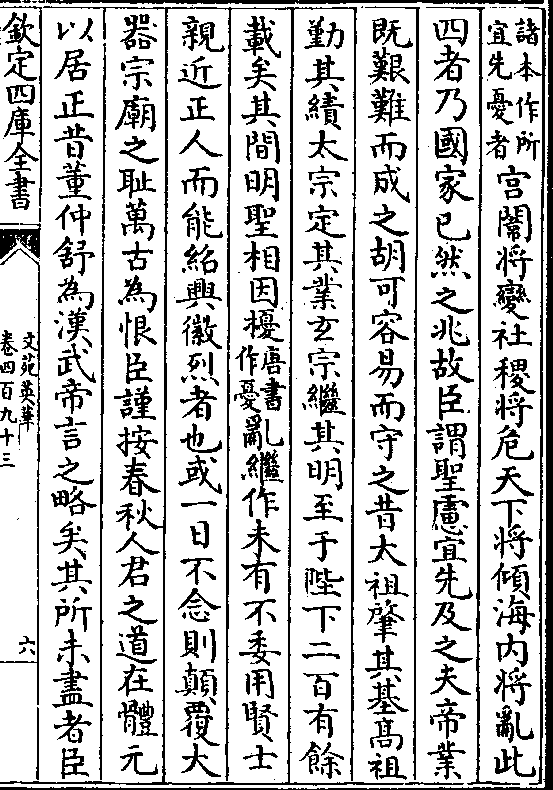 諸本作所
宜先憂者
宫闈將變社稷將危天下將傾海内將亂此
四者乃國家已然之兆故臣謂聖慮宜先及之夫帝業
既艱難而成之胡可容易而守之昔太祖肇其基髙祖
勤其績太宗定其業玄宗繼其明至于陛下二百有餘
載矣其間明聖相因擾唐書作憂亂繼作未有不委用賢士
親近正人而能紹興徽烈者也或一日不念則顛覆大
器宗廟之恥萬古為恨臣謹按春秋人君之道在體元
以居正昔董仲舒為漢武帝言之略矣其所未盡者臣
欽定四庫全書
文苑英華
卷四百九十三
六